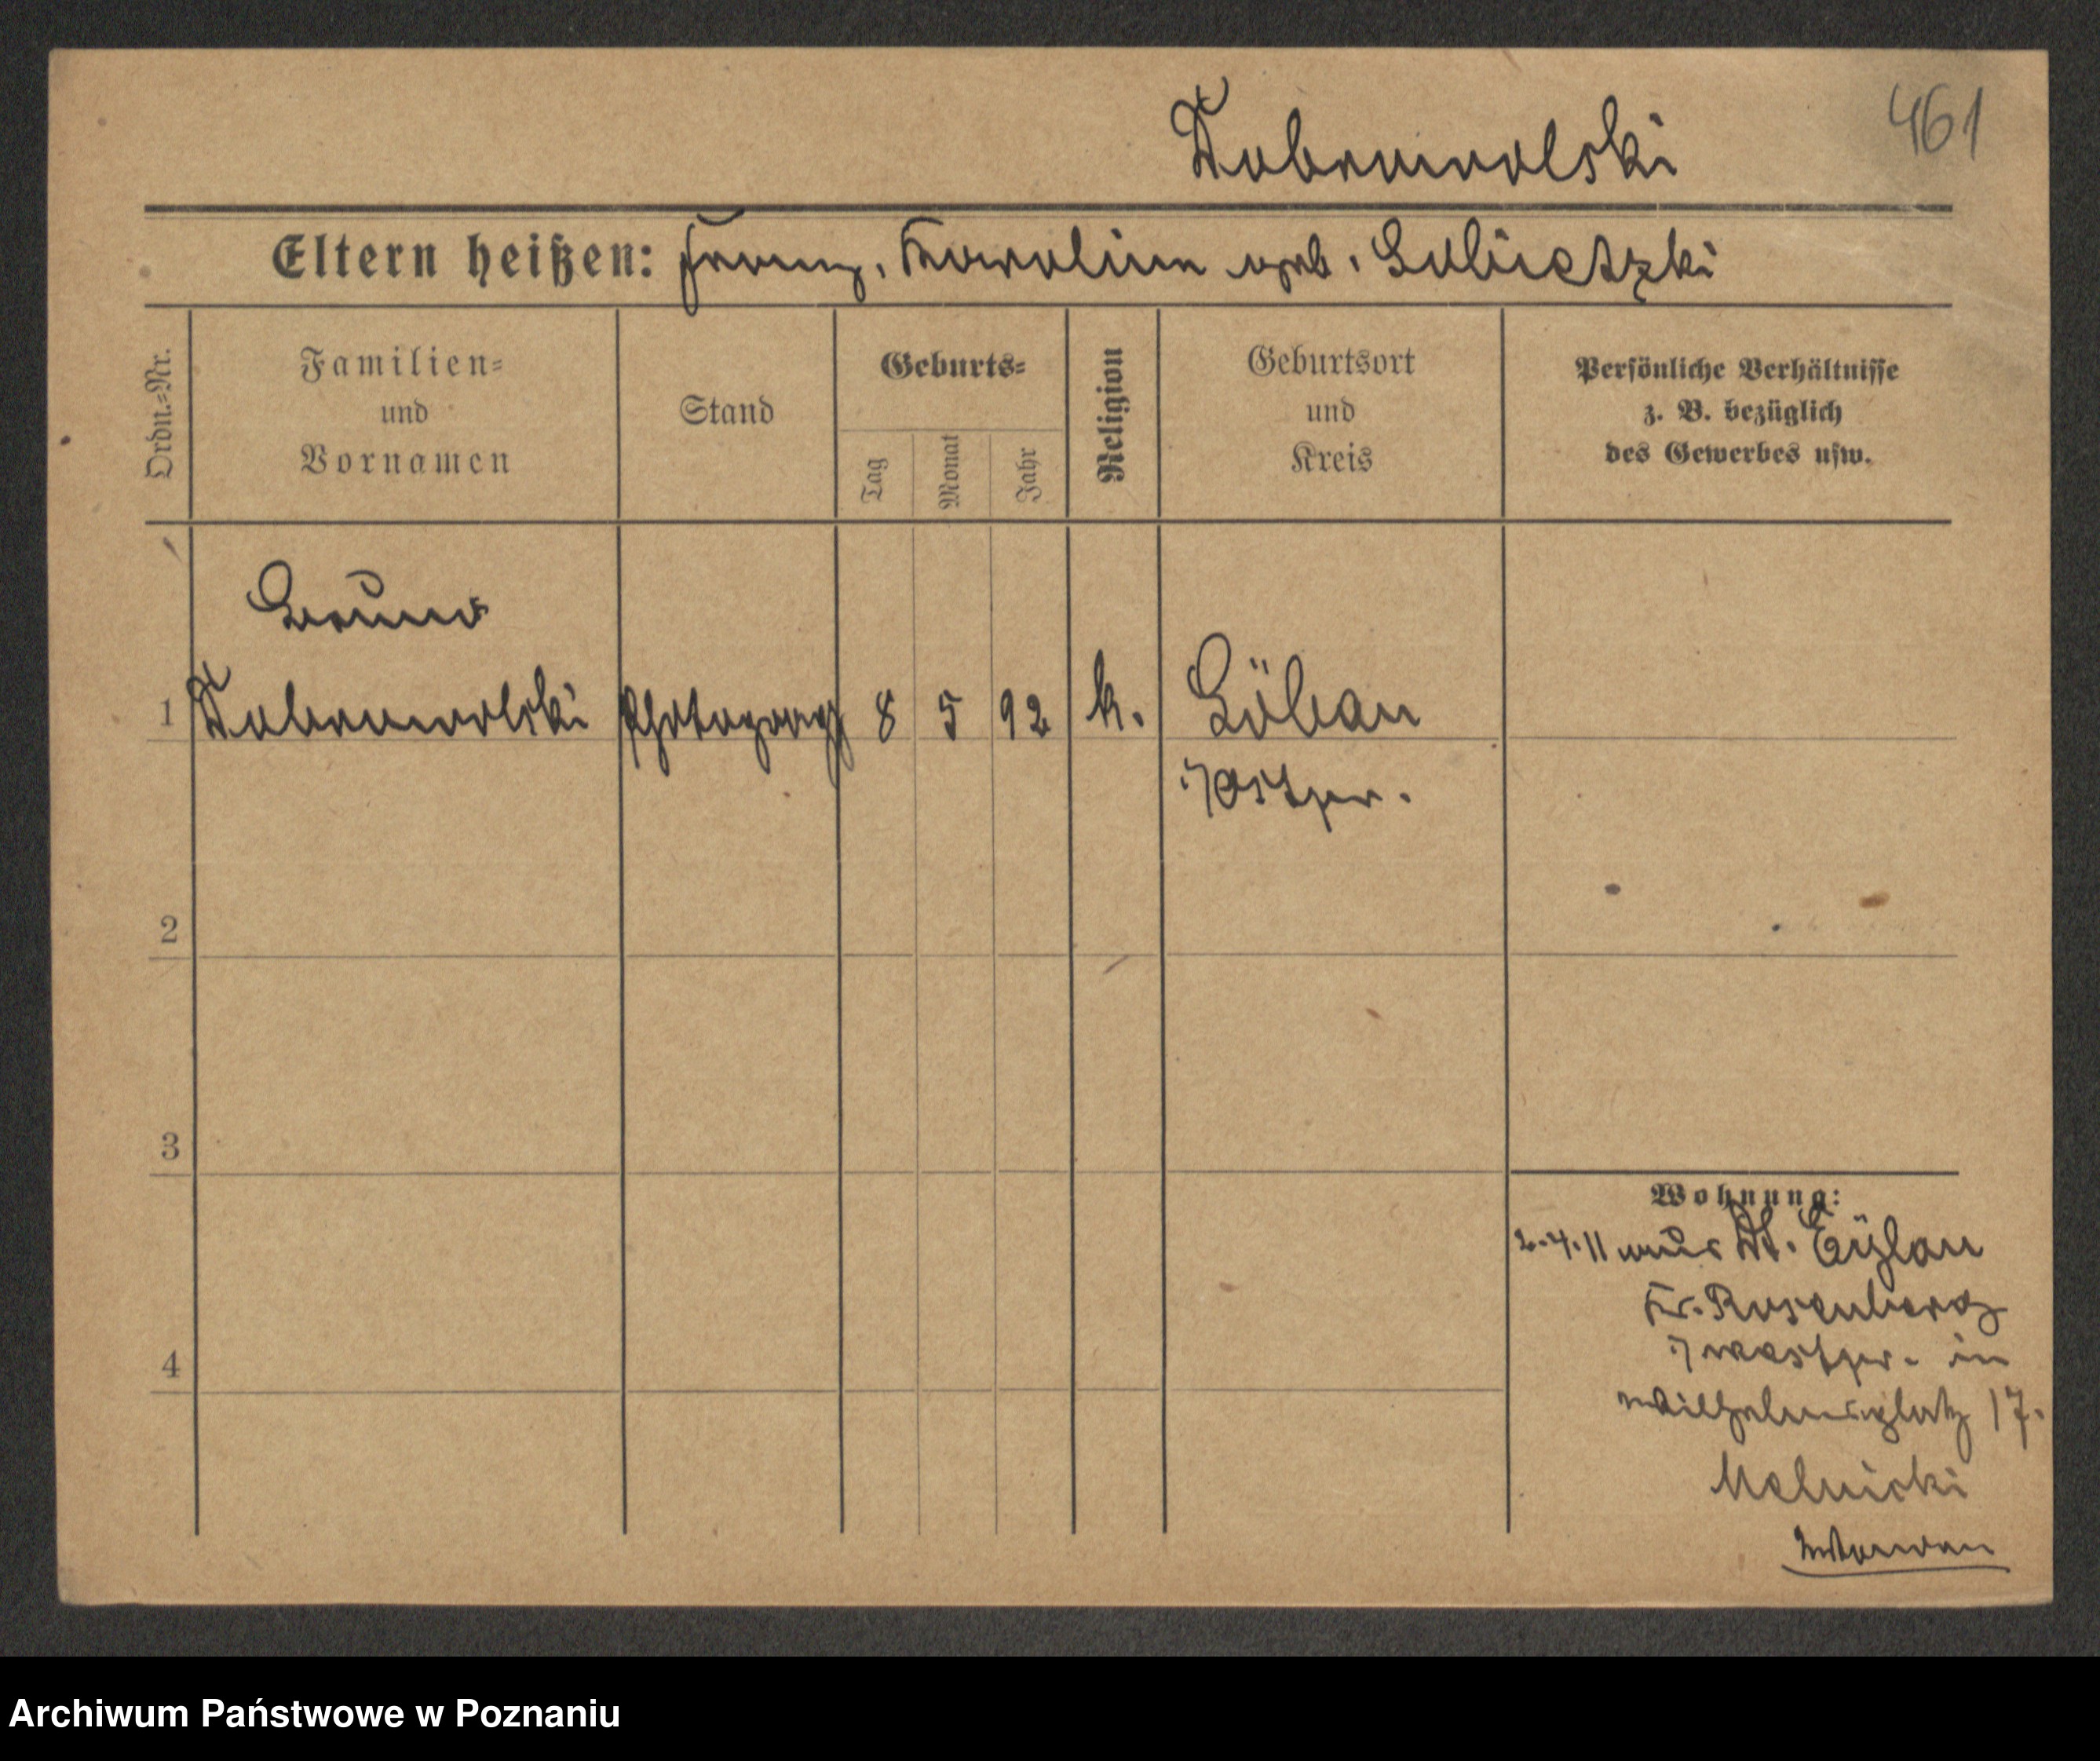 461
Dobrowolski
Eltern heißen: Franz, Karoline geb. Lobietzki
Ordn.-Nr.
Familien-
und
Vornamen
Stand
Geburts-
Tag
Monat
Jahr
Religion
Geburtsort
und
Kreis
Persönliche Verhältnisse
z. B. bezüglich
des Gewerbes usw.
Bruno
1 Dobrowolski Photogragh 8 5 92 k. Löbau
i/Ostpr.
2
3
4
Wohnung:
2.4.11 aus Dt. Eylau
Kr. Rosenberg
i/westpr. in
Wilhelmsplatz 17.
Melnicki
Archiwum Państwowe w Poznaniu